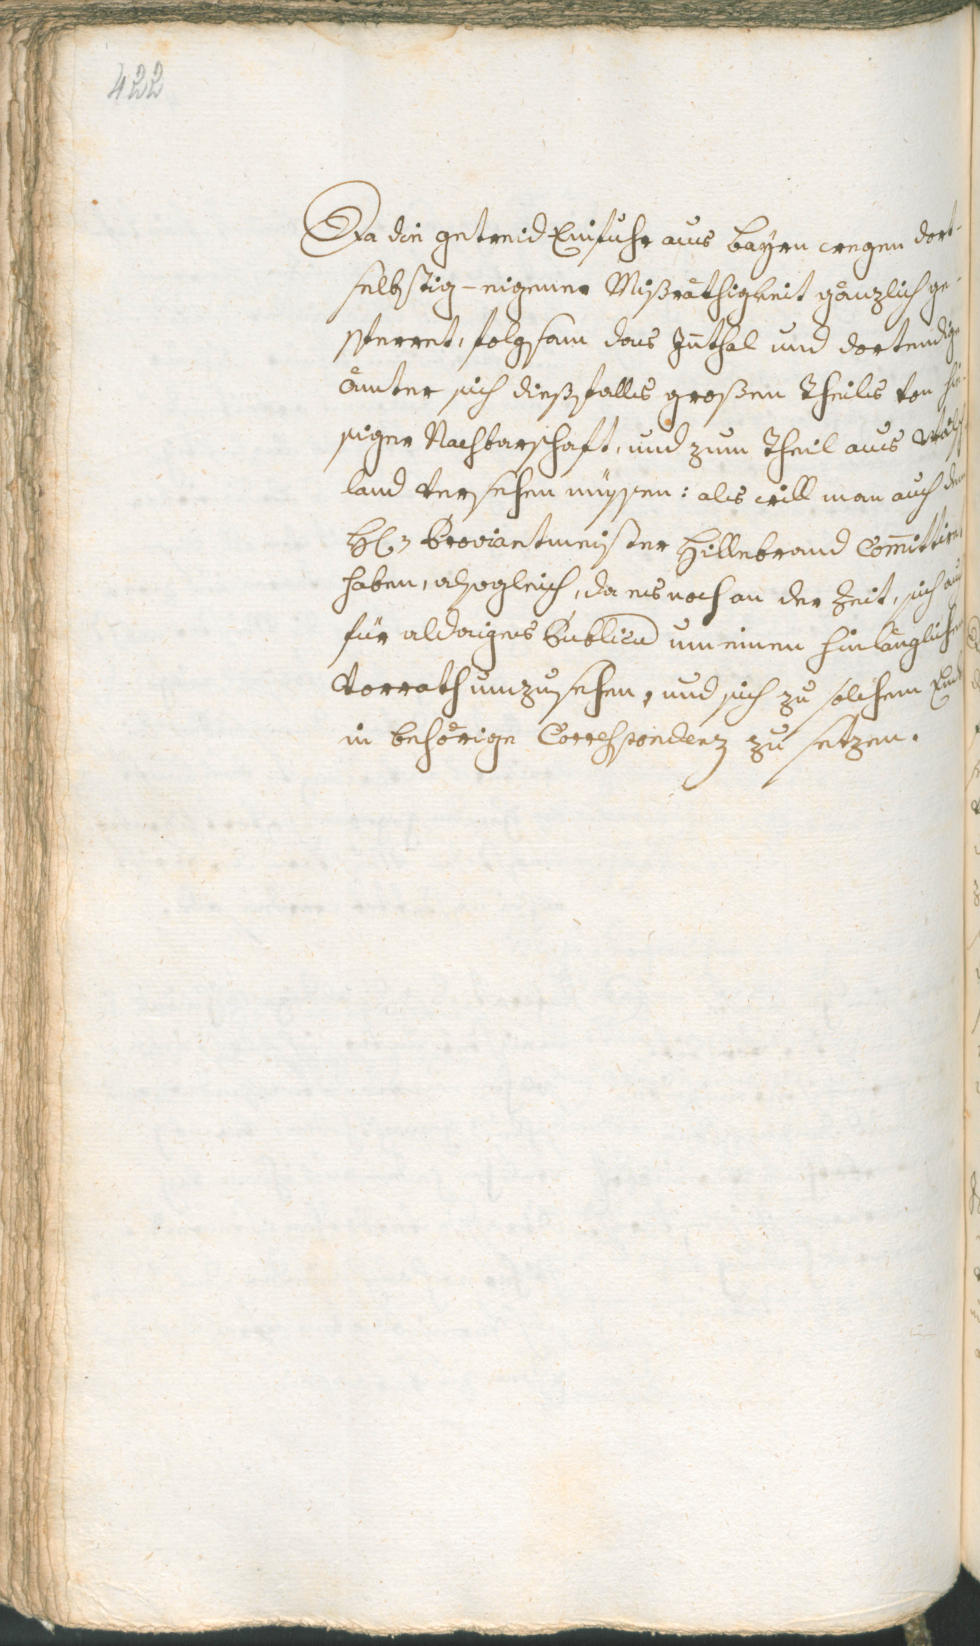 422
Da die getreid Einfuhr aus bayrn wegen dort-
selbstig-eigener Mißräthigkeit gänzlich ge-
sperret, folgsam das Jn̄thal und dortendige
ämter sich dießfalls großen Theils von hie-
siger Nachbarschaft, und zum Theil aus wälsch
land versehen müssen: als will man auch dem
Hl: Proviantmeister Hillebrand Com̄ittiret
haben, alsogleich, da es noch an der Zeit, sich auch
für aldaiges Publicum um einen hinlänglichen
Vorrath umzusehen, und sich zu solchem Ende
in behörige Correspondenz zu setzen.